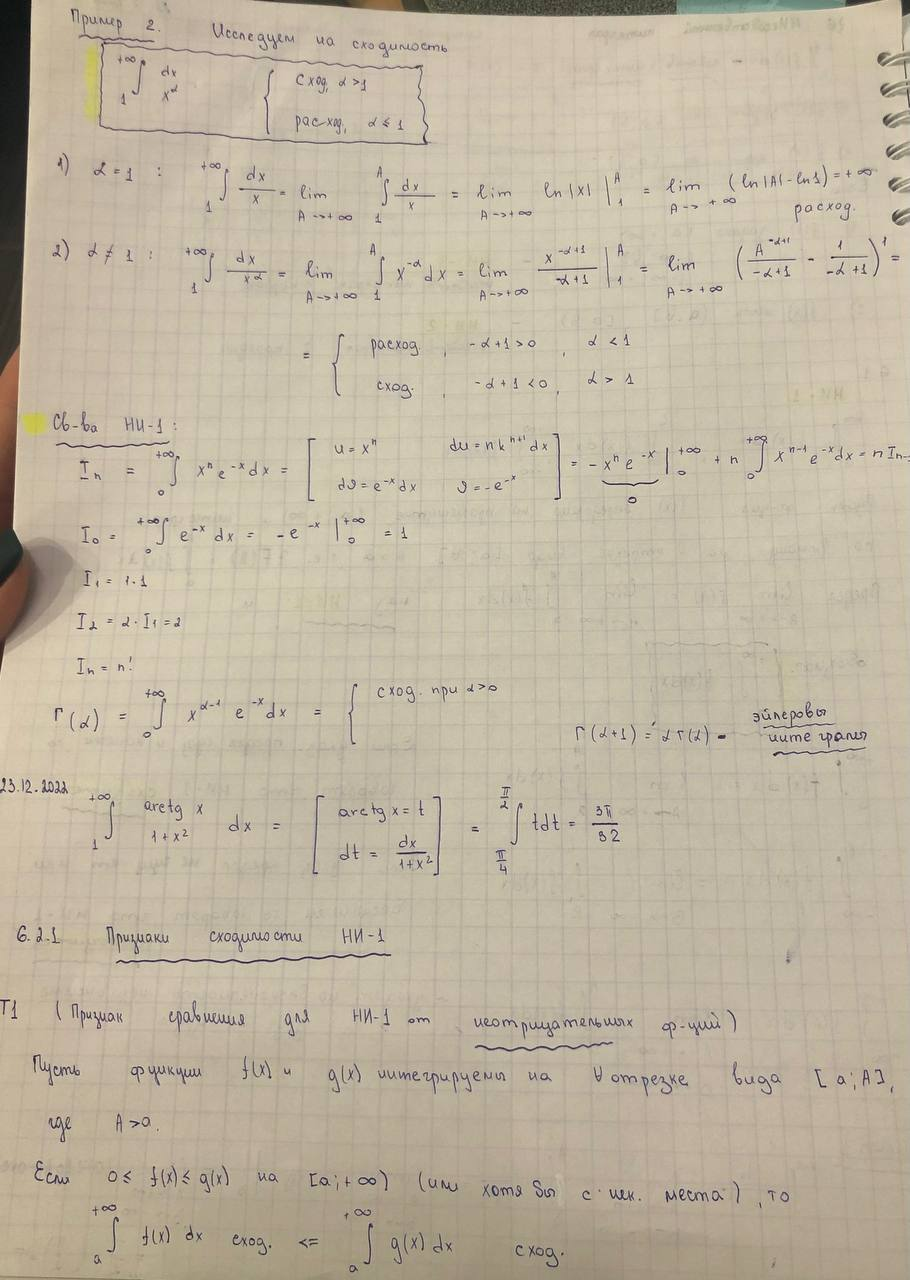 Пример 2. Исследуем на сходимость
∫₁^{+∞} dx/x^α { сход, α > 1
расход, α ≤ 1
1) α = 1 : ∫₁^{+∞} dx/x = lim_{A→+∞} ∫₁^A dx/x = lim_{A→+∞} ln|x| |₁^A = lim_{A→+∞} (ln|A| - ln1) = +∞
расход.
2) α ≠ 1 : ∫₁^{+∞} dx/x^α = lim_{A→+∞} ∫₁^A x^{-α} dx = lim_{A→+∞} x^{-α+1}/(-α+1) |₁^A = lim_{A→+∞} (A^{-α+1}/(-α+1) - 1/(-α+1))¹ =
= { расход. , -α+1>0 , α < 1
сход. , -α+1 <0 , α > 1
Св-ва НИ-1 :
Iₙ = ∫₀^{+∞} xⁿ e^{-x} dx = [ u = xⁿ du = n k^{n+1} dx
dϑ = e^{-x} dx ϑ = -e^{-x} ] = - xⁿ e^{-x} |₀^{+∞} + n ∫₀^{+∞} x^{n-1} e^{-x} dx = n Iₙ₋
0
I₀ = ∫₀^{+∞} e^{-x} dx = -e^{-x} |₀^{+∞} = 1
I₁ = 1·1
I₂ = 2·I₁ = 2
Iₙ = n!
Γ(α) = ∫₀^{+∞} x^{α-1} e^{-x} dx = { сход. при α>0
Γ(α+1) = α Γ(α) - эйлеровы
интегралы
23.12.2022
∫₁^{+∞} arctg x / 1+x² dx = [ arctg x = t
dt = dx/(1+x²) ] = ∫_{π/4}^{π/2} t dt = 3π/32
6.2.1 Признаки сходимости НИ-1
Т1 (Признак сравнения для НИ-1 от неотрицательных ф-ций)
Пусть функции f(x) и g(x) интегрируемы на ∀ отрезке вида [a; A],
где A>a.
Если 0 ≤ f(x) ≤ g(x) на [a; +∞) (или хотя бы с нек. места), то
∫ₐ^{+∞} f(x) dx сход. <= ∫ₐ^{+∞} g(x) dx сход.